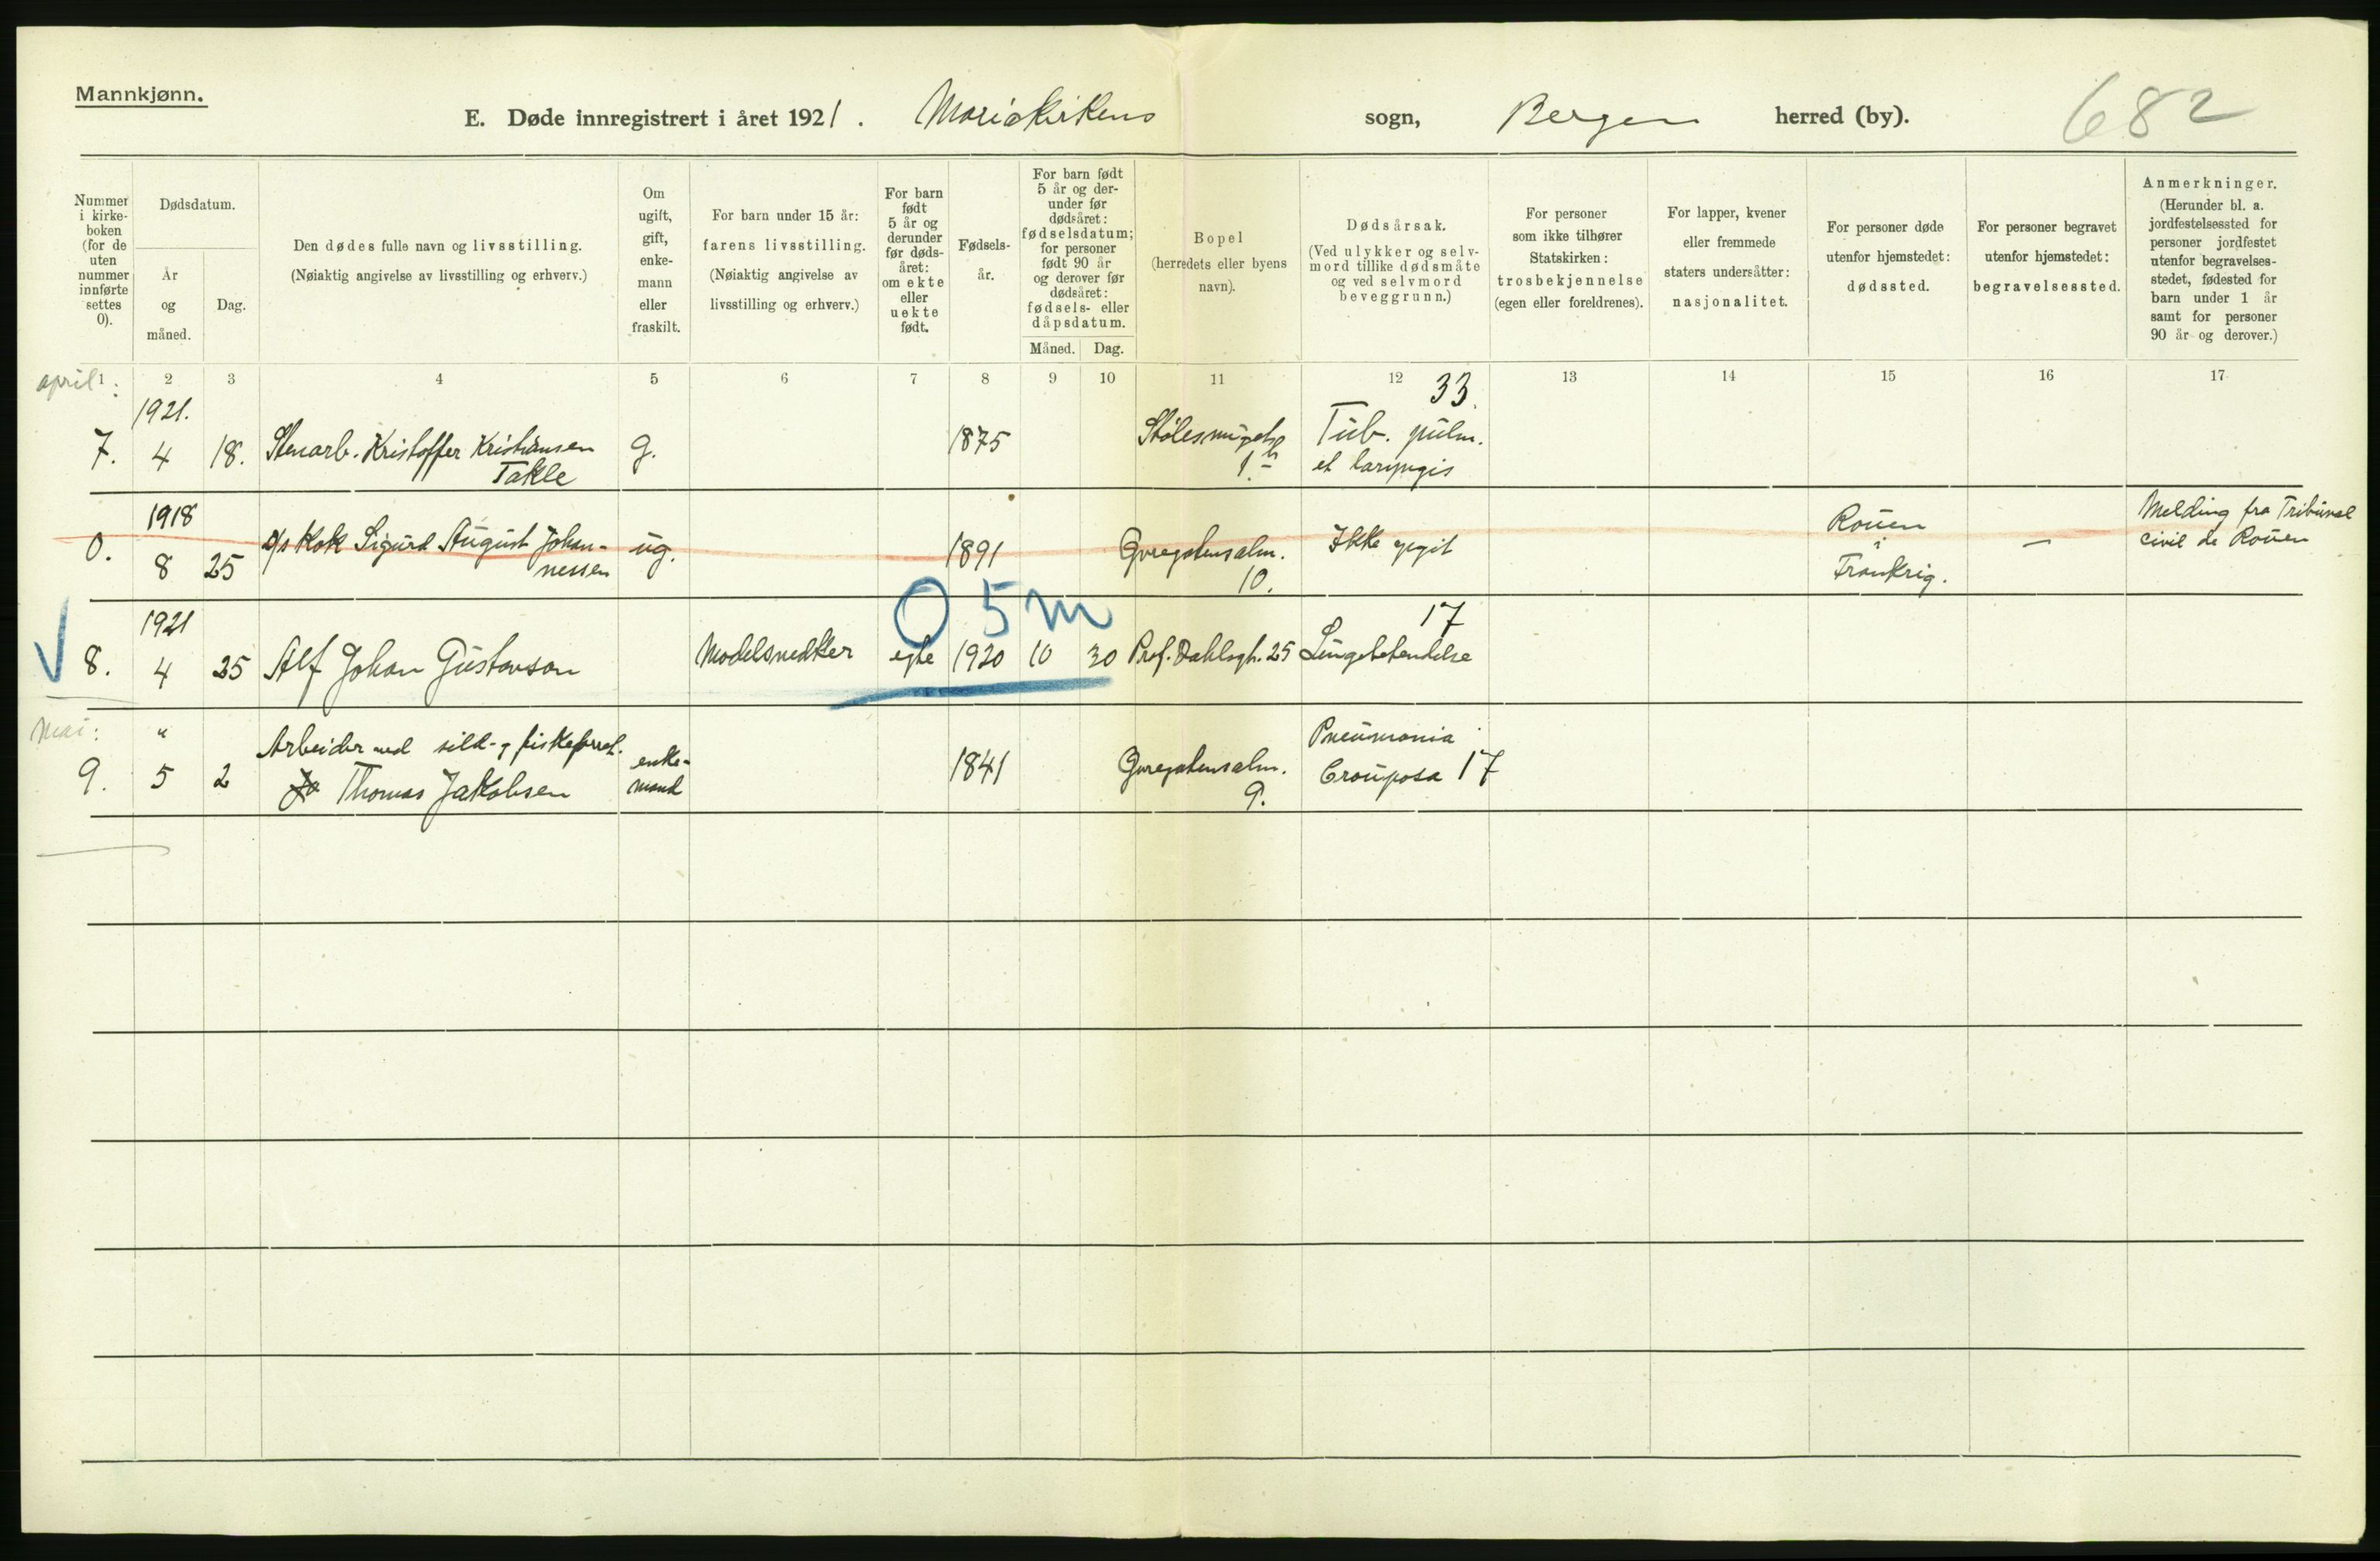 Mannkjønn.
E. Døde innregistrert i året 1921. Mariakirkens sogn, Bergen herred (by). 682
Nummer i kirke- boken (for de uten nummer innførte settes 0).
Dødsdatum.
År og måned.
Dag.
Den dødes fulle navn og livsstilling.
(Nøiaktig angivelse av livsstilling og erhverv.)
Om ugift, gift, enke- mann eller fraskilt.
For barn under 15 år:
farens livsstilling.
(Nøiaktig angivelse av
livsstilling og erhverv.)
For barn født 5 år og derunder før døds- året: om ekte eller uekte født.
Fødsels- år.
For barn født 5 år og der- under før dødsåret: fødselsdatum; for personer født 90 år og derover før dødsåret: fødsels- eller dåpsdatum.
Måned. Dag.
Bopel
(herredets eller byens navn).
Dødsårsak.
(Ved ulykker og selv- mord tillike dødsmåte og ved selvmord beveggrunn.)
For personer som ikke tilhører Statskirken: trosbekjennelse (egen eller foreldrenes).
For lapper, kvener eller fremmede staters undersåtter: nasjonalitet.
For personer døde utenfor hjemstedet: dødssted.
For personer begravet utenfor hjemstedet: begravelsessted.
Anmerkninger.
(Herunder bl. a. jordfestelsessted for personer jordfestet utenfor begravelses- stedet, fødested for barn under 1 år samt for personer 90 år og derover.)
april:
1 2 3 4 5 6 7 8 9 10 11 12 13 14 15 16 17
1921. 33.
7. 4 18. Stenarb. Kristoffer Kristiansen Takle g. 1875 1b Tub. pulm. et laryngis
1918
0. 8 25 Kok Sigurd August Johan- nessen ug. 1891 10. Ikke Rouen i Frankrig. — Melding fra Tribunal civil de Rouen
0 5 m
1921 17
8. 4 25 Alf Johan Gustavson Modelsnedker egte 1920 10 30 Prof. Dahlsgt. 25 Lungebetendelse
Mai:
"
9. 5 2 Arbeider ved sild- og fiskeforret. Thomas Jakobsen enke- mand 1841 9. Pneumonia Crouposa 17